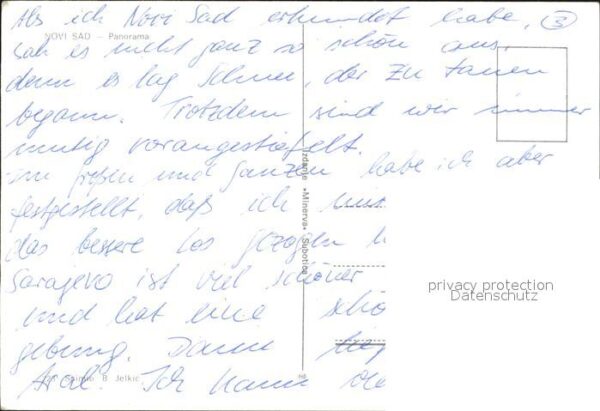 Als ich Novi Sad erkundet habe, ③
NOVI SAD — Panorama
sah es nicht ganz so schön aus,
denn es lag Schnee, der zu tauen
begann. Trotzdem sind wir immer
mutig vorangestiefelt.
Im großen und Ganzen habe ich aber
festgestellt, daß ich
das bessere Los gezogen
Sarajevo ist viel schöner
und hat eine schö
gebung. Dann
Aral. Ich kann
Izdanje •Minerva• Subotica
B Jelkić
privacy protection
Datenschutz